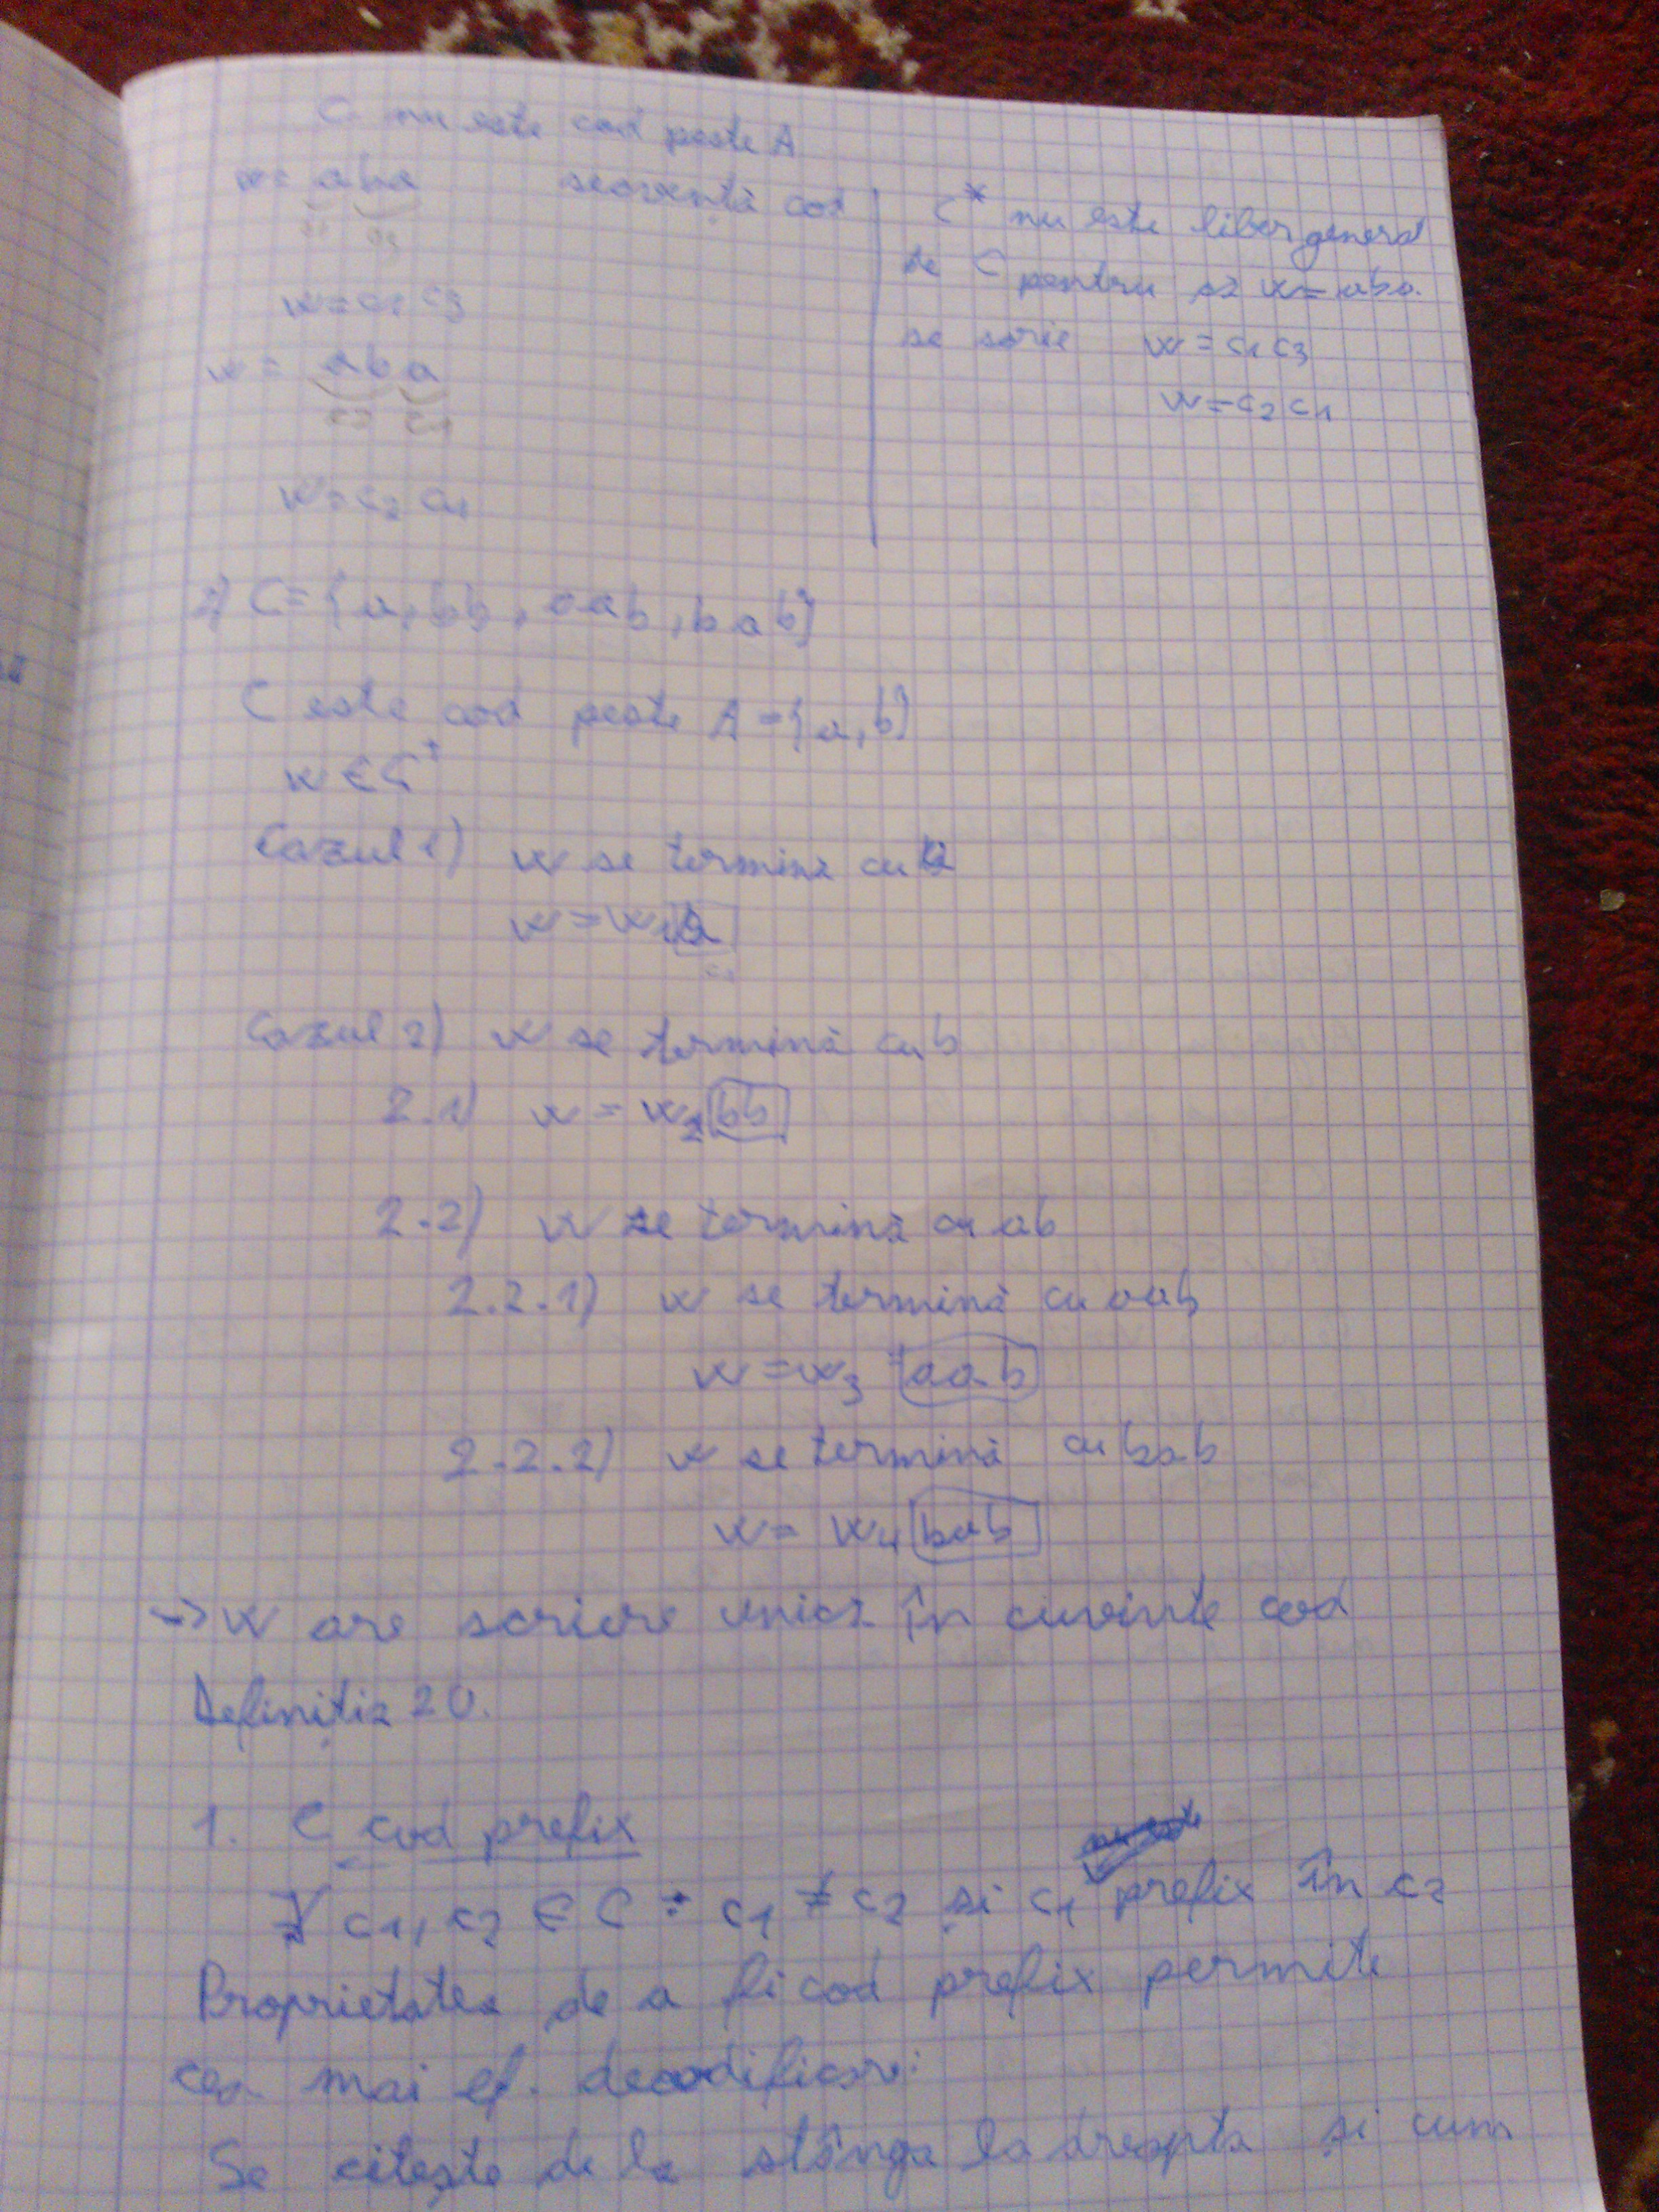 C nu este cod peste A
w = aba secvență cod
c1 c3
w = c1 c3
w = aba
c2 c1
w = c2 c1
C* nu este liber generat
de C pentru că w = aba
se scrie w = c1 c3
w = c2 c1
2) C = {a, bb, aab, bab}
C este cod peste A = {a, b}
w ∈ C+
Cazul 1) w se termină cu a
w = w1 a
Cazul 2) w se termină cu b
2.1) w = w2 bb
2.2) w se termină cu ab
2.2.1) w se termină cu aab
w = w3 aab
2.2.2) w se termină cu bab
w = w4 bab
-> w are scriere unică în cuvinte cod
Definiția 20.
1. C cod prefix
c1, c2 ∈ C : c1 ≠ c2 și c1 prefix în c2
Proprietatea de a fi cod prefix permite
cea mai ef. decodificare:
Se citește de la stânga la dreapta și cum